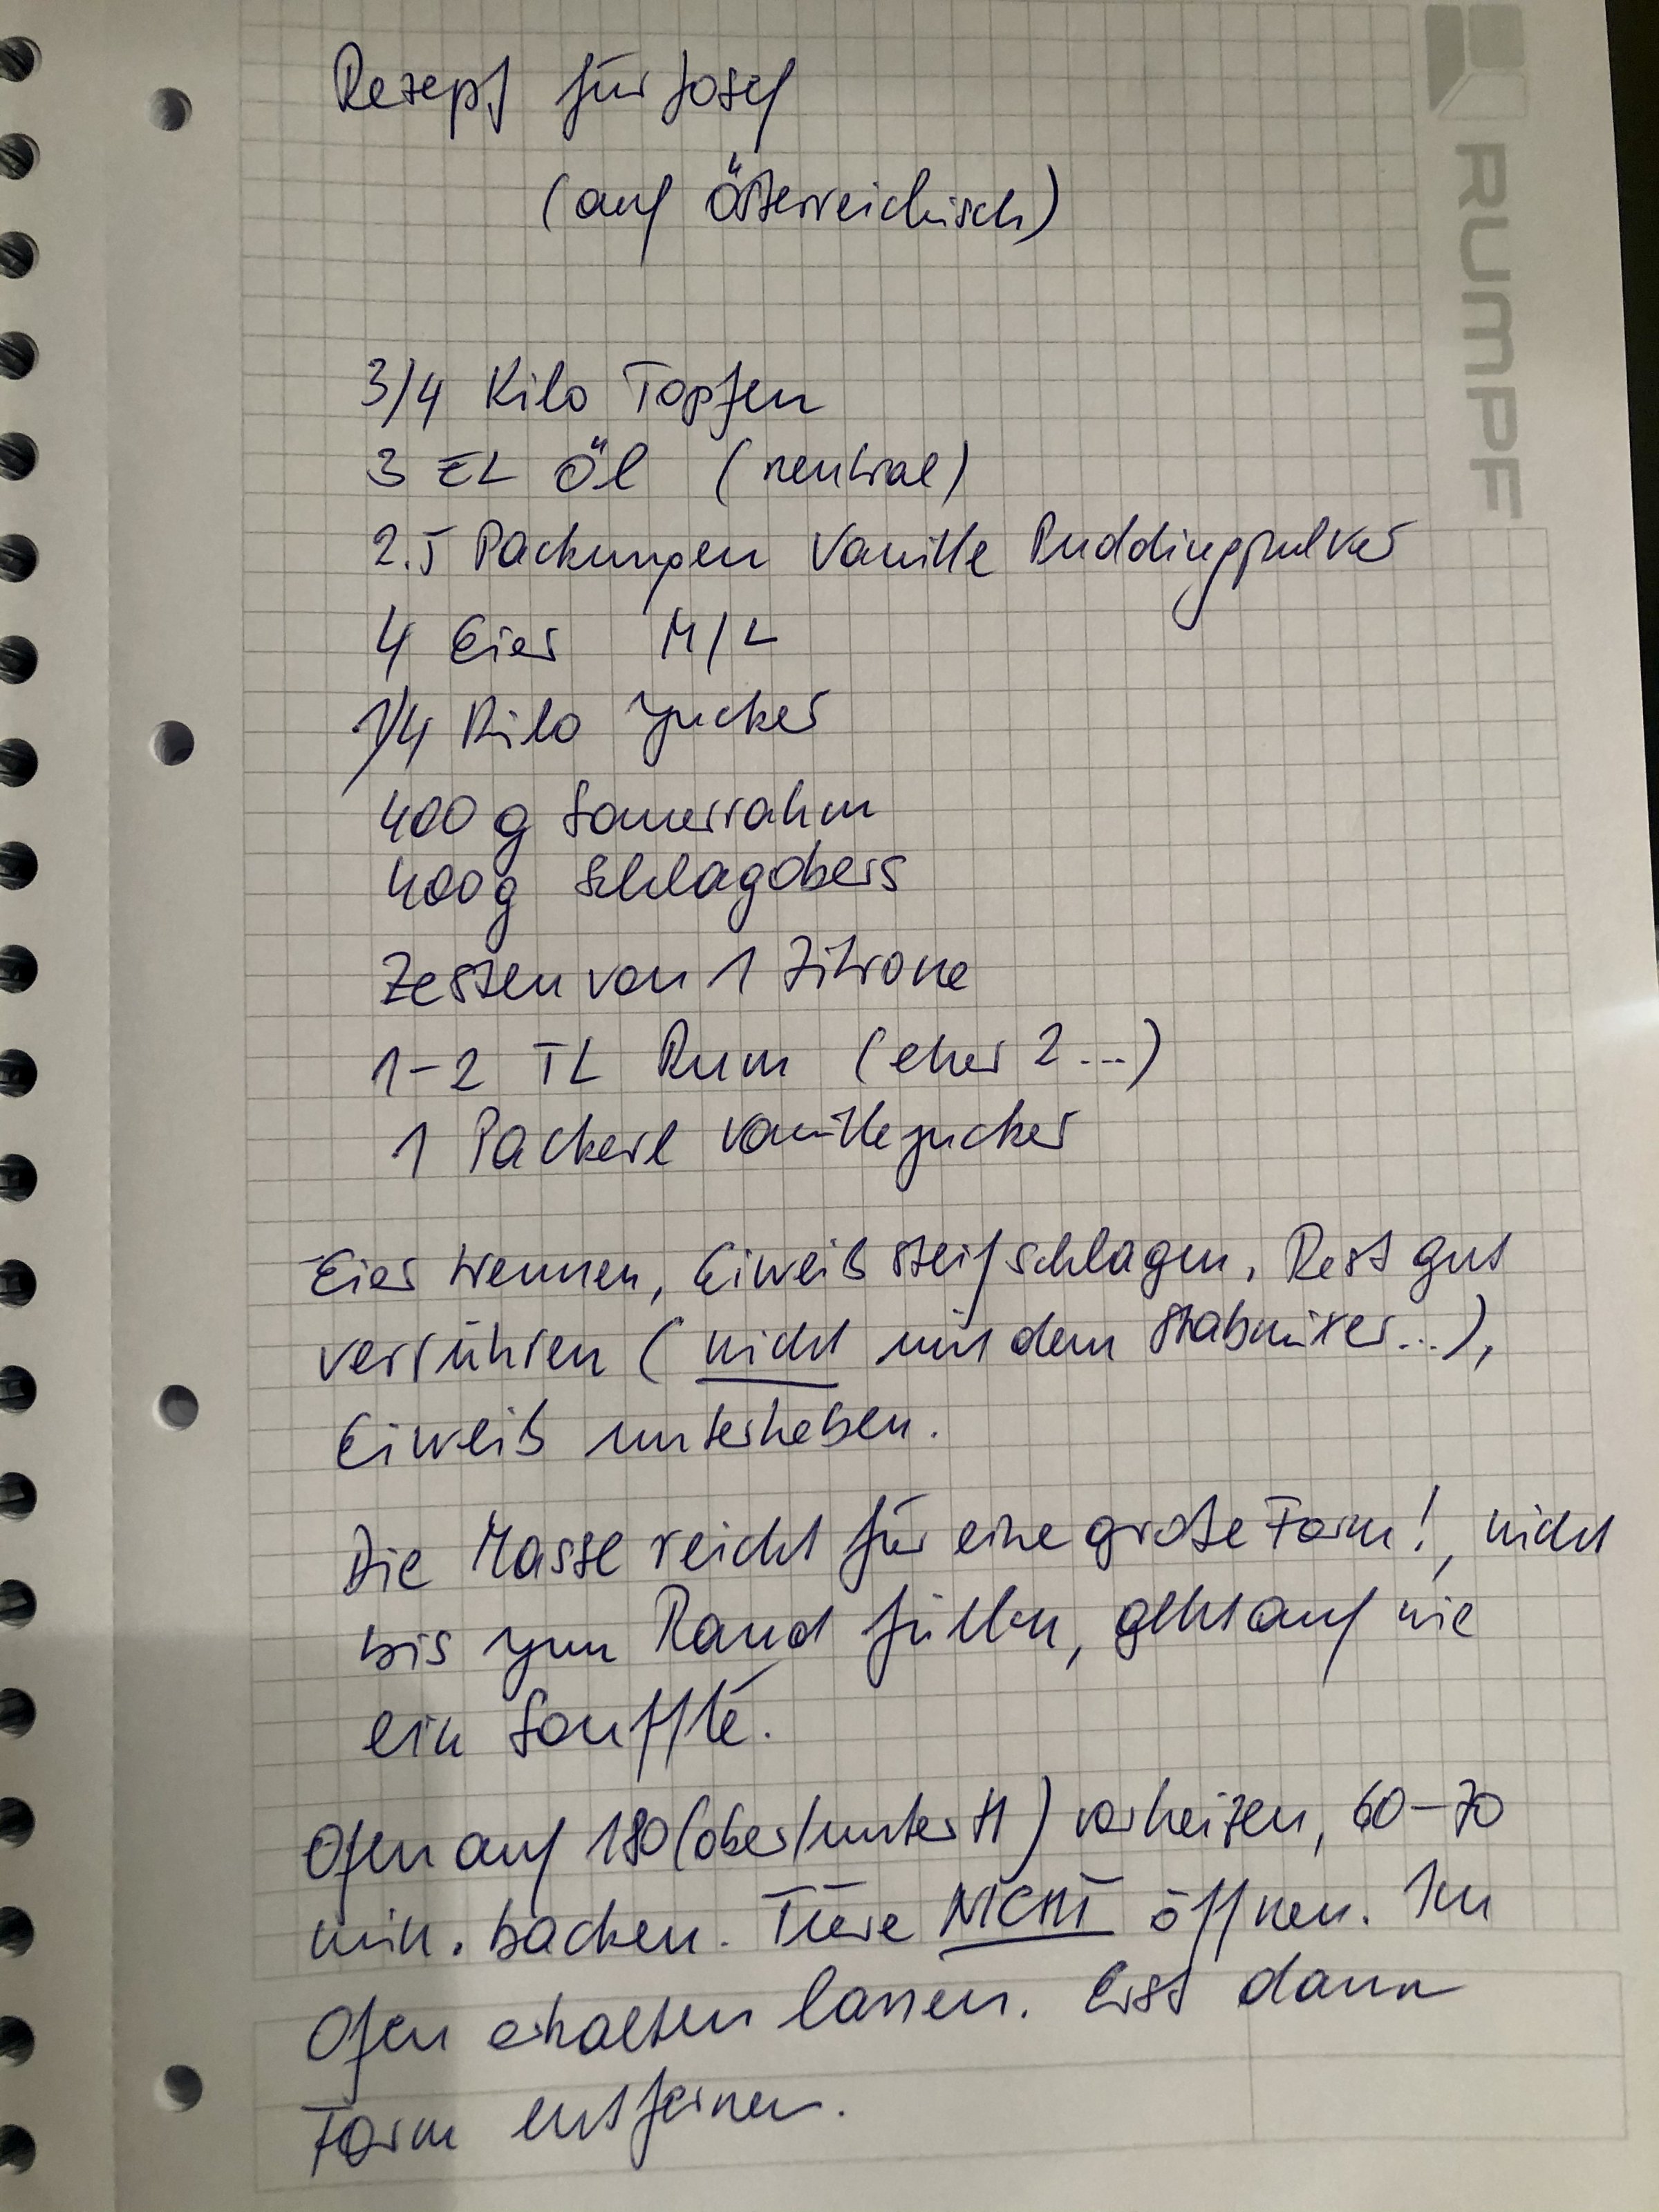 Rezept für Josef
(auf Österreichisch)
RUMPF
3/4 Kilo Topfen
3 EL Öl (neutral)
2.5 Packungen Vanille Puddingpulver
4 Eier M/L
1/4 Kilo Zucker
400 g Sauerrahm
400g Schlagobers
Zesten von 1 Zitrone
1-2 TL Rum (eher 2...)
1 Packerl Vanillezucker
Eier trennen, Eiweiß steif schlagen, Rest gut
verrühren (nicht mit dem Stabmixer...),
Eiweiß unterheben.
Die Masse reicht für eine große Form!, nicht
bis zum Rand füllen, geht auf wie
ein Soufflé.
Ofen auf 180 (ober/unter H) vorheizen, 60-70
min. backen. Türe NICHT öffnen. Im
Ofen erkalten lassen. Erst dann
Form entfernen.